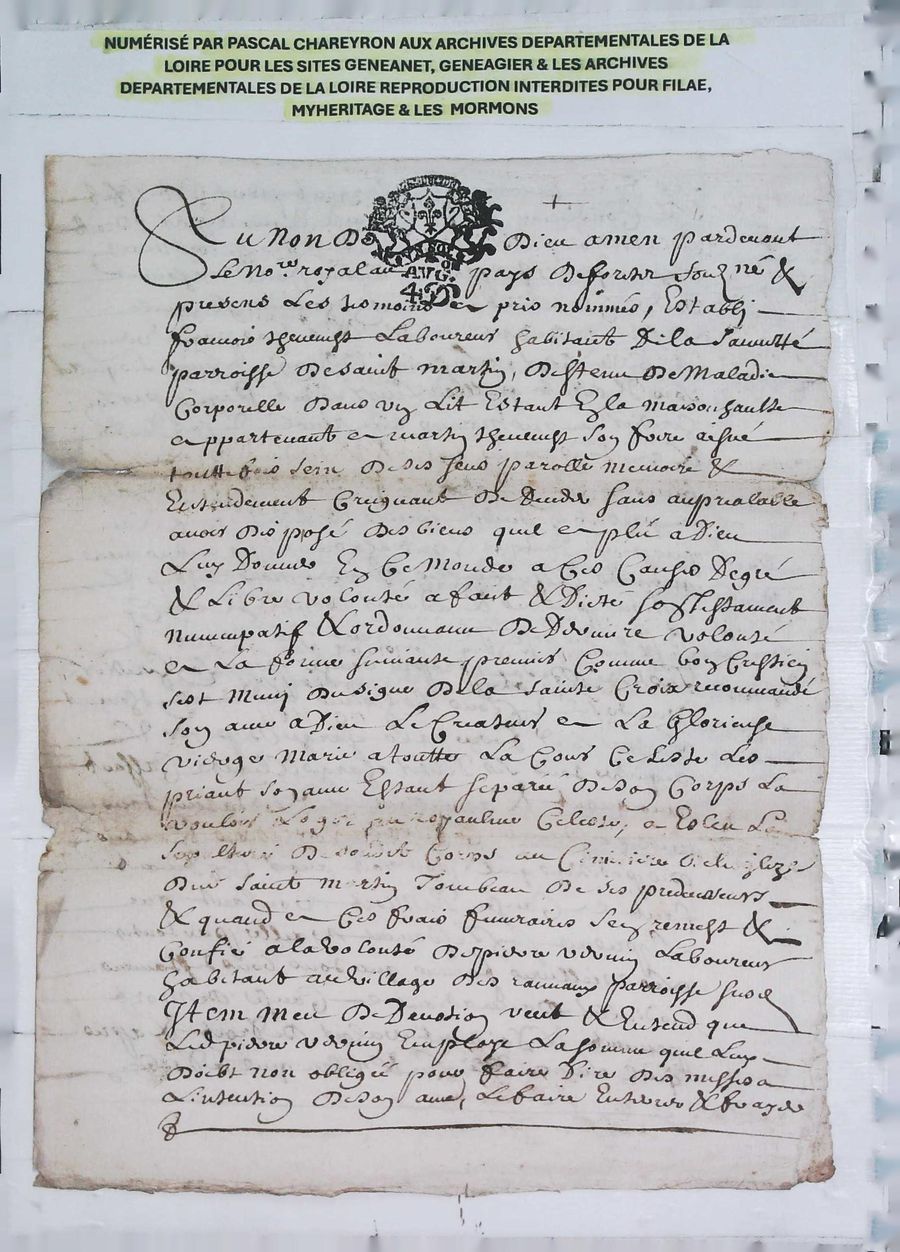 NUMÉRISÉ PAR PASCAL CHAREYRON AUX ARCHIVES DEPARTEMENTALES DE LA
LOIRE POUR LES SITES GENEANET, GENEAGIER & LES ARCHIVES
DEPARTEMENTALES DE LA LOIRE REPRODUCTION INTERDITES POUR FILAE,
MYHERITAGE & LES MORMONS
Au Nom De Dieu amen pardevant
Le No.re royal au pays De forestz souz.né &
presens Les tesmoins en prio nommés, Establi
francois Laboureur habitant De la
parroisse De saint martin, Destenu De Maladie
Corporelle Dans un Lit Estant En la maison haulte
appartenant a martin son frere aisné
touttefois sein De ses sens parolle memoire &
Entendement Creignant De Deceder sans au prealable
avoir Disposé Des biens quil a plû a Dieu
Luy Donner En Ce Monde a Ces Causes De gré
& Libre volonté a faict & Dicté son testament
nuncupatif & ordonnance De Derniere volonté
en La forme suivante premier Comme bon Crestien
sest Muni Du signe De la Sainte Croix recommandé
son ame a Dieu Le Createur a La Glorieuse
vierge Marie a toutte La Cour Celeste Les
priant son ame Estant separée De son Corps La
vouloir Loger au royaulme Celeste, a Esleu La
sepulture De son dit Corps au Cimitiere De leglize
Dud saint martin Tombeau De ses predecesseurs
& quand a Ces frais funeraires sen remest &
Confie a la volonté De pierre Laboureur
habitant au village Des parroisse susd
Item Meu De Devotion veut & Entend que
Led pierre Employe La somme quil Luy
Doibt non obligée pour faire Dire Des messes a
Lintention De son ame, Le faire Enterrer &